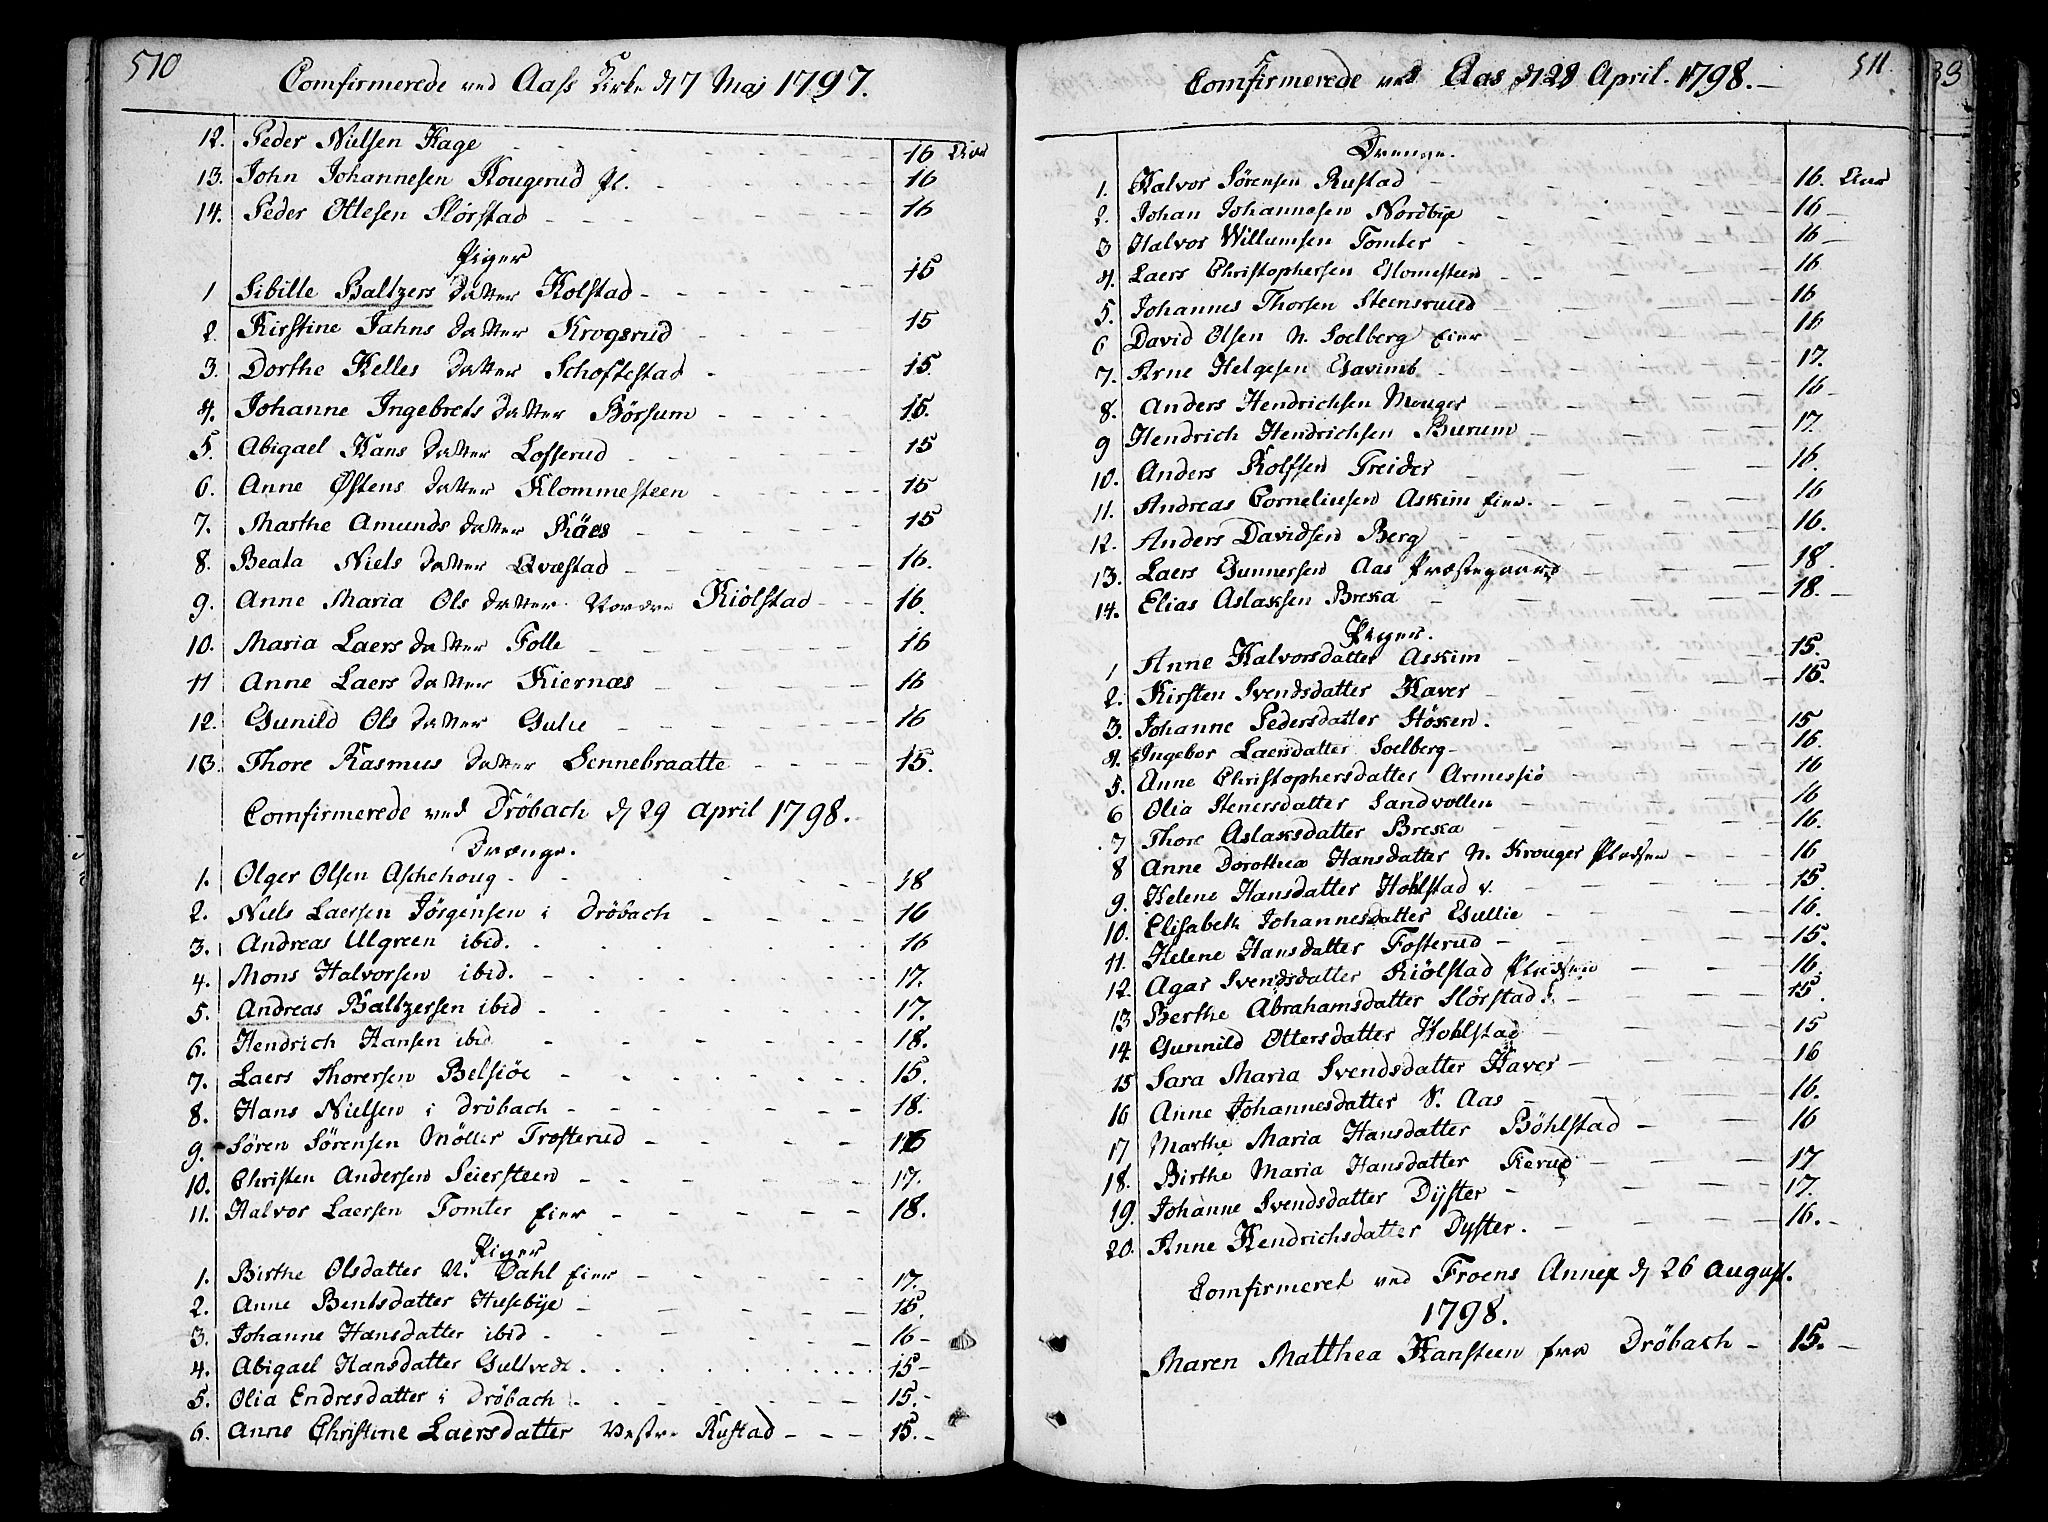 510
Comfirmerede ved Aass Kirke d 7 Maj 1797.
12. Peder Nielsen Hage 16 Aar
13. John Johannesen Kougerud pl. 16
14. Peder Ottesen Slörstad 16
Piger
1 Sibille Baltzers datter Kolstad 15
2. Kirstine Jahns datter Krogsrud 15
3. Dorthe Helles datter Schoftestad 15.
4. Johanne Ingebrets datter Börsum 15.
5. Abigael Hans datter Losserud 15
6. Anne Østens datter Klommesteen 15
7. Marthe Amunds datter Käes 15
8. Beata Niels datter Qvæstad 16.
9. Anne Maria Ols datter Nordre Kiölstad 16.
10. Maria Laers datter Folle 16
11 Anne Laers datter Kiernæs 16
12. Gunild Ols datter Gulie 16
13. Thore Rasmus datter Sennebraatte 15.
Comfirmerede ved Dröbach d 29 April 1798.
Drænge.
1. Olger Olsen Aschehoug 18
2. Niels Laersen Jörgensen i Dröbach 16
3. Andreas Ulgreen ibid. 16
4. Mons Halvorsen ibid. 17.
5. Andreas Baltzersen ibid 17.
6. Hendrich Hansen ibid 18.
7. Laers Thorersen Belsiöe 15.
8. Hans Nielsen i Dröbach 18.
9. Sören Sörensen Möller Trosterud 16
10. Christen Andersen Seiersteen 17.
11. Halvor Laersen Tomter Eier 18.
Piger
1. Birthe Olsdatter N. Dahl Eier 17.
2. Anne Bentsdatter Husebye 15
3. Johanne Hansdatter ibid 16
4. Abigael Hansdatter Gultvedt 15
5. Olia Endresdatter i Dröbach 15.
6. Anne Christine Laersdatter Vestre Rustad 15.
511
Comfirmerede ved Aas d 28 April. 1798.
Drenge.
1. Halvor Sörensen Rustad 16. Aar
2. Johan Johannesen Nordbye 16
3 Halvor Willumsen Tomter 16
4. Laers Christophersen Klomesteen 16
5. Johannes Thorsen Steensruud 16
6 David Olsen N. Soelberg Eier 16
7. Arne Helgesen Gavimb 17.
8. Anders Hendrichsen Mouger 16
9 Hendrich Hendrichsen Burum 17.
10. Anders Rolfsen Treider 16.
11. Andreas Corneliusen Askim Eier. 16
12. Anders Davidsen Berg 16.
13. Laers Gunnersen Aas Præstegaard 18.
14. Elias Aslaksen Breka 18.
Piger.
1 Anne Halvorsdatter Askim 15.
2. Kirsten Svendsdatter Haver 15.
3. Johanne Pedersdatter Höken. 15
4. Ingebor Laersdatter Soelberg 16.
5. Anne Christophersdatter Armessiö 16
6 Olia Stenersdatter Sandvollen 16
7 Thore Aslaksdatter Breka 16.
8 Anne Dorothea Hansdatter N. Krouger Pladsen 16
9. Helene Hansdatter Hohlstad v. 15.
10. Elisabeth Johannesdatter Gullie 16.
11. Helene Hansdatter Fosterud 15.
12. Agar Svendsdatter Kiölstad Pladsen 16
13 Berthe Abrahamsdatter Slörstad S. 15.
14. Gunnild Ottersdatter Hohlstad 15
15 Sara Maria Svendsdatter Haver 16
16 Anne Johannesdatter S. Aas 16.
17 Marthe Maria Hansdatter Böhlstad 16
18. Birthe Maria Hansdatter Kerud 17
19. Johanne Svendsdatter Dyster 17.
20. Anne Hendrichsdatter Dyster. 16.
Comfirmeret ved Froens Annex d 26 August.
1798.
Maren Matthea Hansteen fra Dröbach 15.